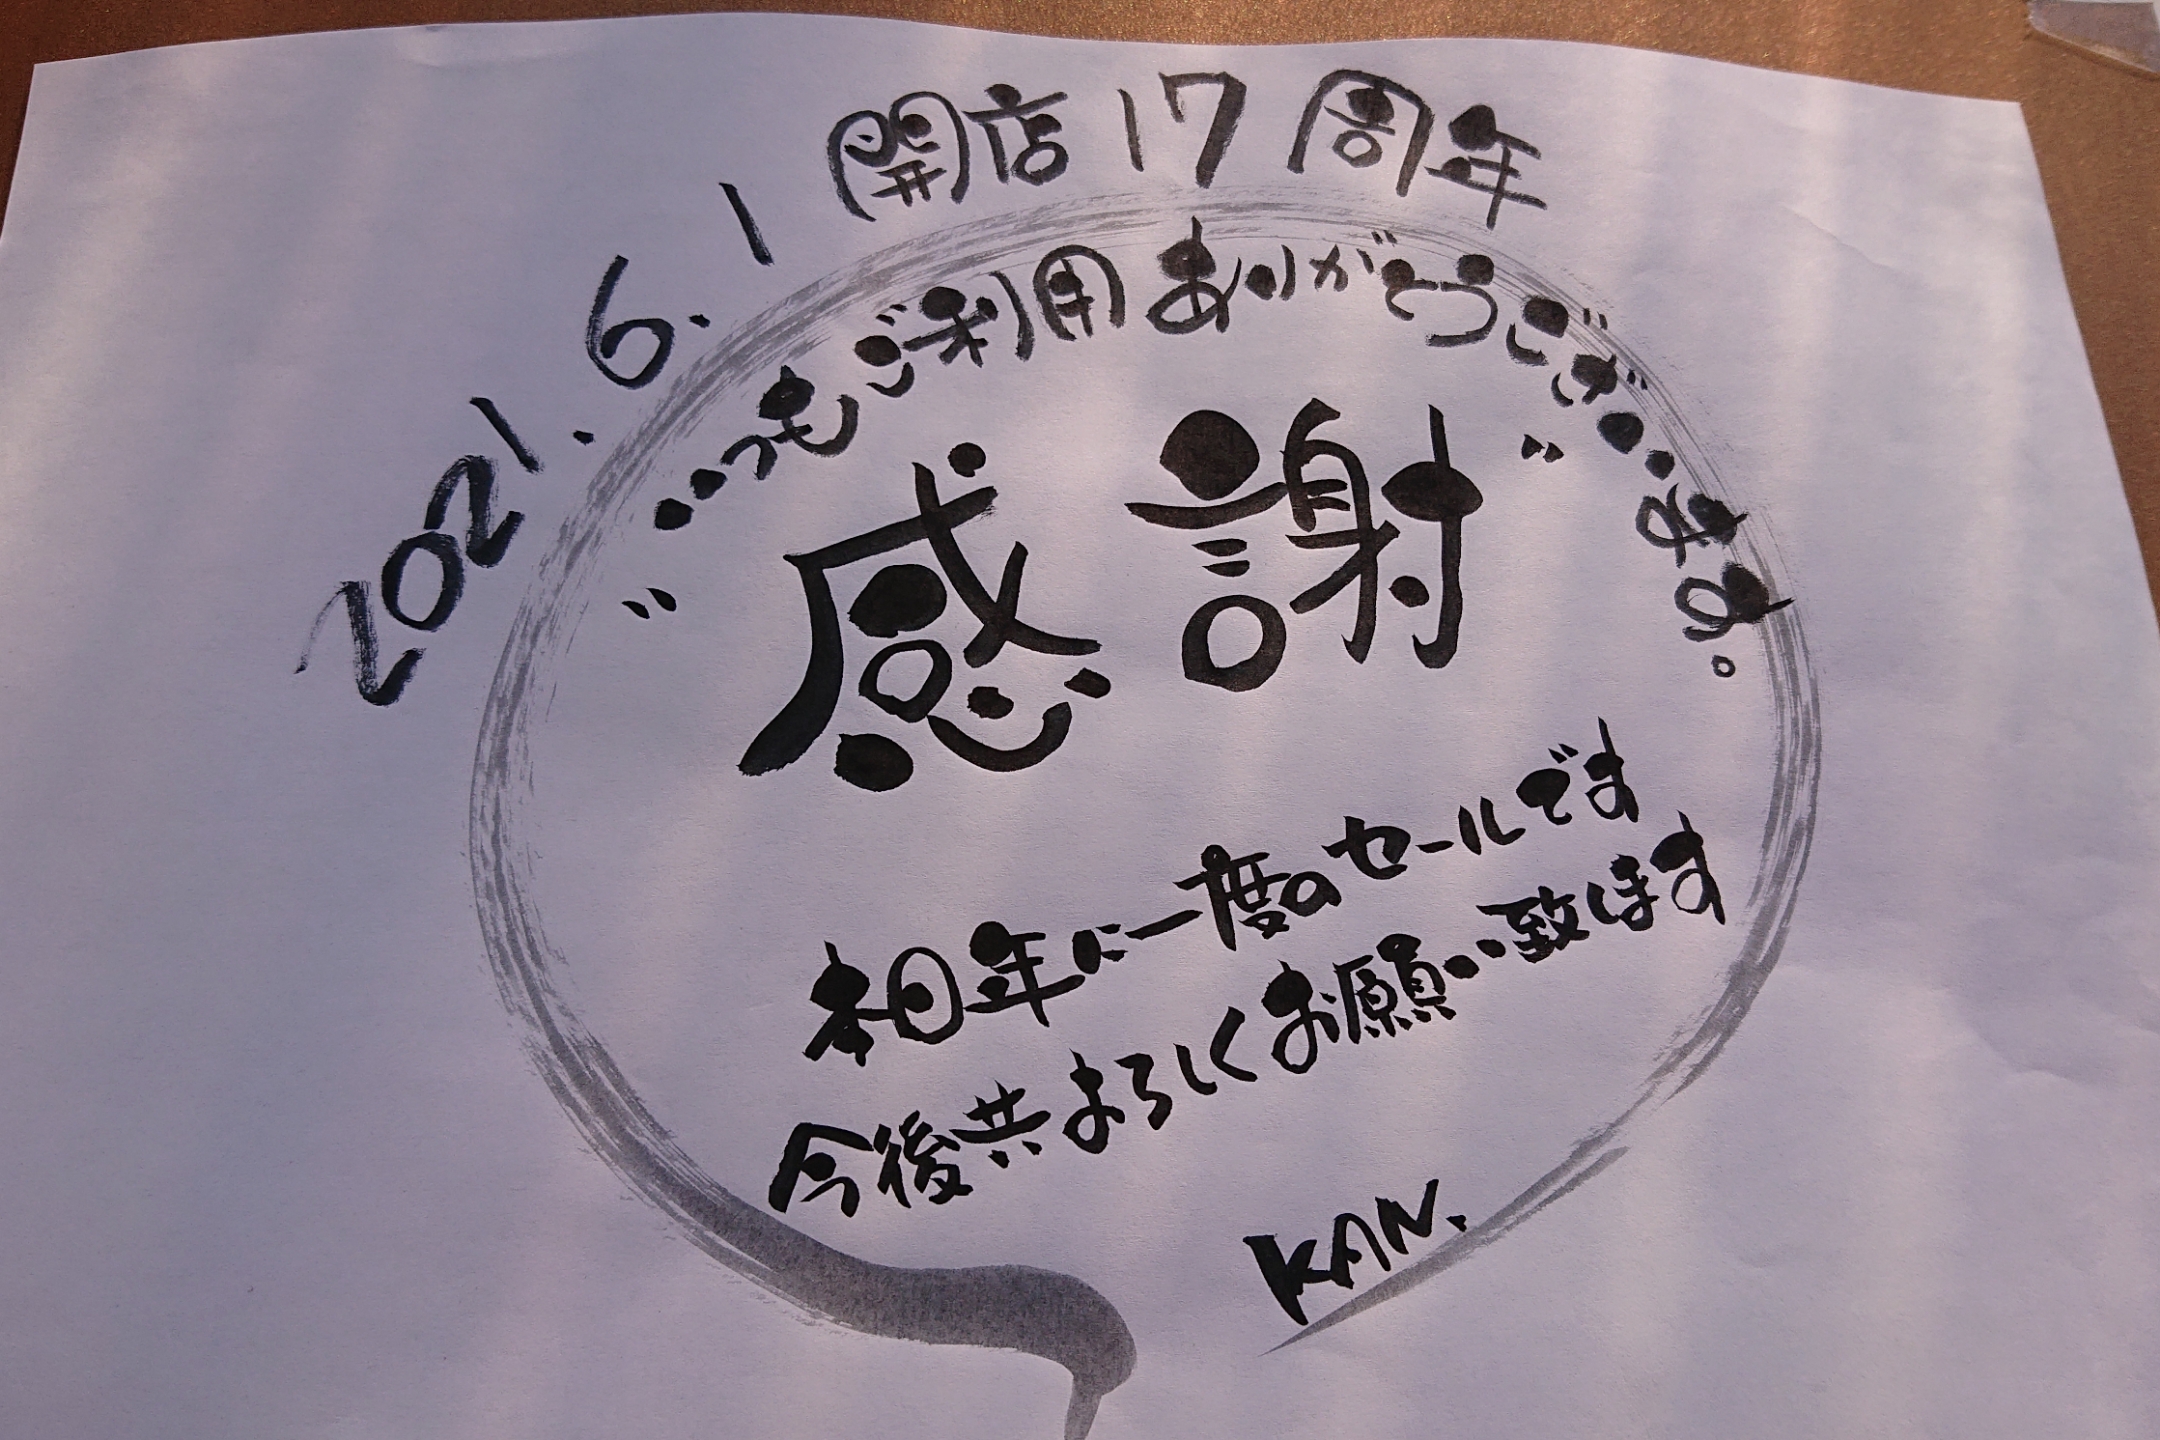 2021.6.1 開店17周年
いつもご利用ありがとうございます。
"感謝"
本日年に一度のセールです
今後共よろしくお願い致します
KAN.